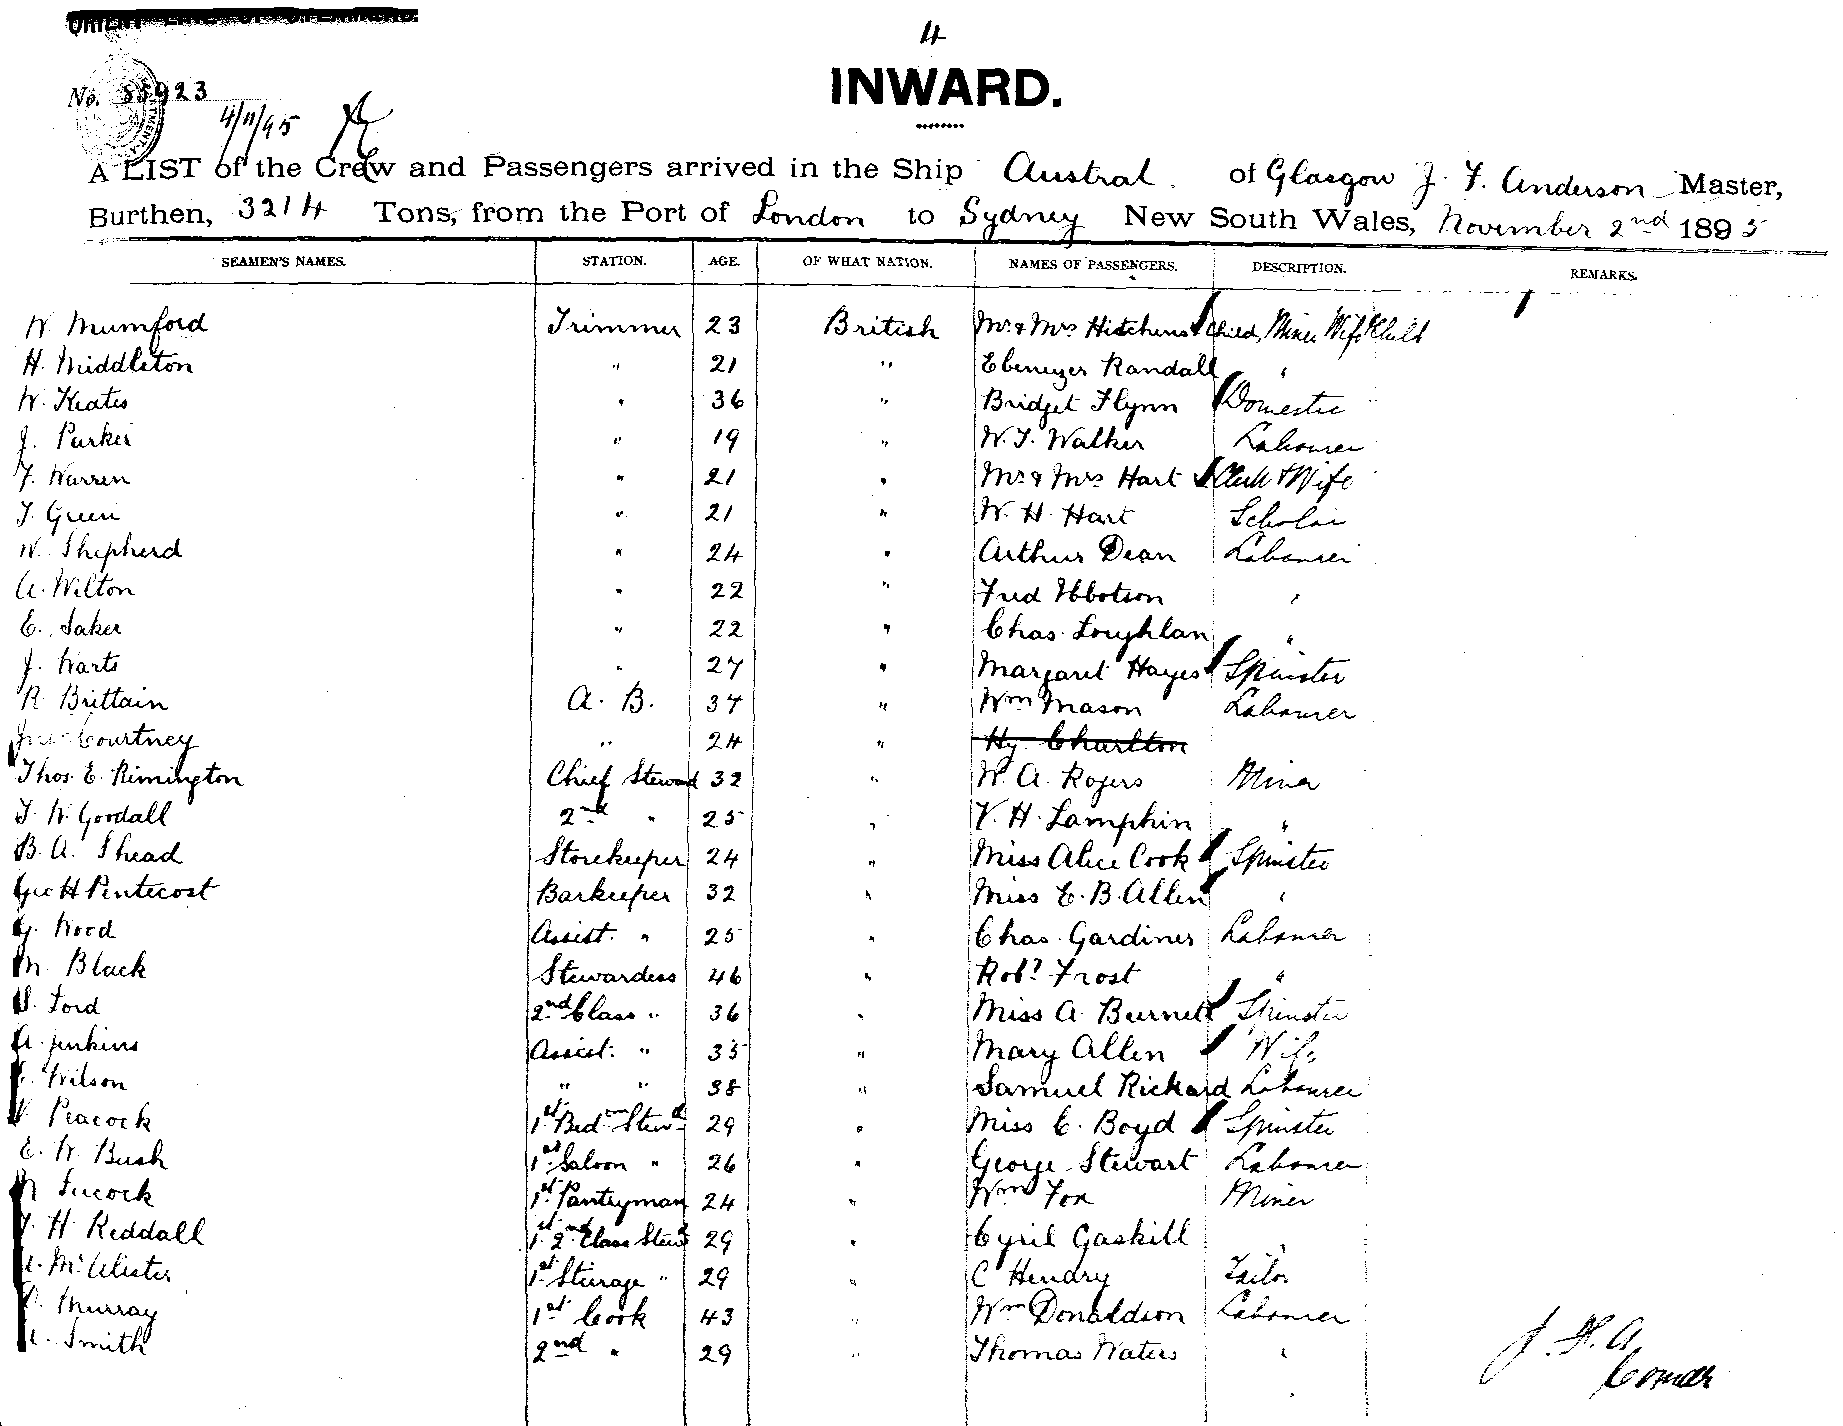 4
INWARD.
No. 55923
4/11/95
A LIST of the Crew and Passengers arrived in the Ship Austral. of Glasgow J. F. Anderson Master,
Burthen, 3214 Tons, from the Port of London to Sydney New South Wales, November 2nd 1895
SEAMEN'S NAMES. STATION. AGE. OF WHAT NATION. NAMES OF PASSENGERS. DESCRIPTION. REMARKS.
W. Mumford Trimmer 23 British Mr & Mrs Hitchens & Child, Miner Wife & Child
H. Middleton " 21 " Ebenezer Randall "
W. Keates " 36 " Bridget Flynn Domestic
J. Parker " 19 " W. J. Walker Labourer
F. Warren " 21 " Mr & Mrs Hart Clerk & Wife
J. Green " 21 " W. H. Hart Scholar
W. Shepherd " 24 " Arthur Dean Labourer
A. Wilton " 22 " Fred Ibbotson "
E. Saker " 22 " Chas. Loughlan "
J. Warts " 27 " Margaret Hayes Spinster
R. Brittain A. B. 37 " Wm Mason Labourer
Courtney " 24 " Hy. Charlton
Thos. E. Rimington Chief Steward 32 " W. A. Rogers Miner
J. W. Goodall 2nd " 25 " V. H. Lamphin "
B. A. Shead Storekeeper 24 " Miss Alice Cook Spinster
Geo H Pentecost Barkeeper 32 " Miss E. B. Allen "
G. Wood Assist. " 25 " Chas. Gardiner Labourer
M. Black Stewardess 46 " Robt Frost "
S. Ford 2nd Class " 36 " Miss A Burnett Spinster
A. Jenkins Assist. " 35 " Mary Allen Wife
Wilson " " 38 " Samuel Rickard Labourer
Peacock 1st Bedrm Stewd 29 " Miss C. Boyd Spinster
E. W. Bush 1st Saloon " 26 " George Stewart Labourer
Lucock 1st Pantryman 24 " Wm Fox Miner
H Reddall 1st 2nd Class Stewd 29 " Cyril Gaskill "
McAlister 1st Steerage " 29 " C Hendry Tailor
Murray 1st Cook 43 " Wm Donaldson Labourer
Smith 2nd " 29 " Thomas Waters "
J. F. A.